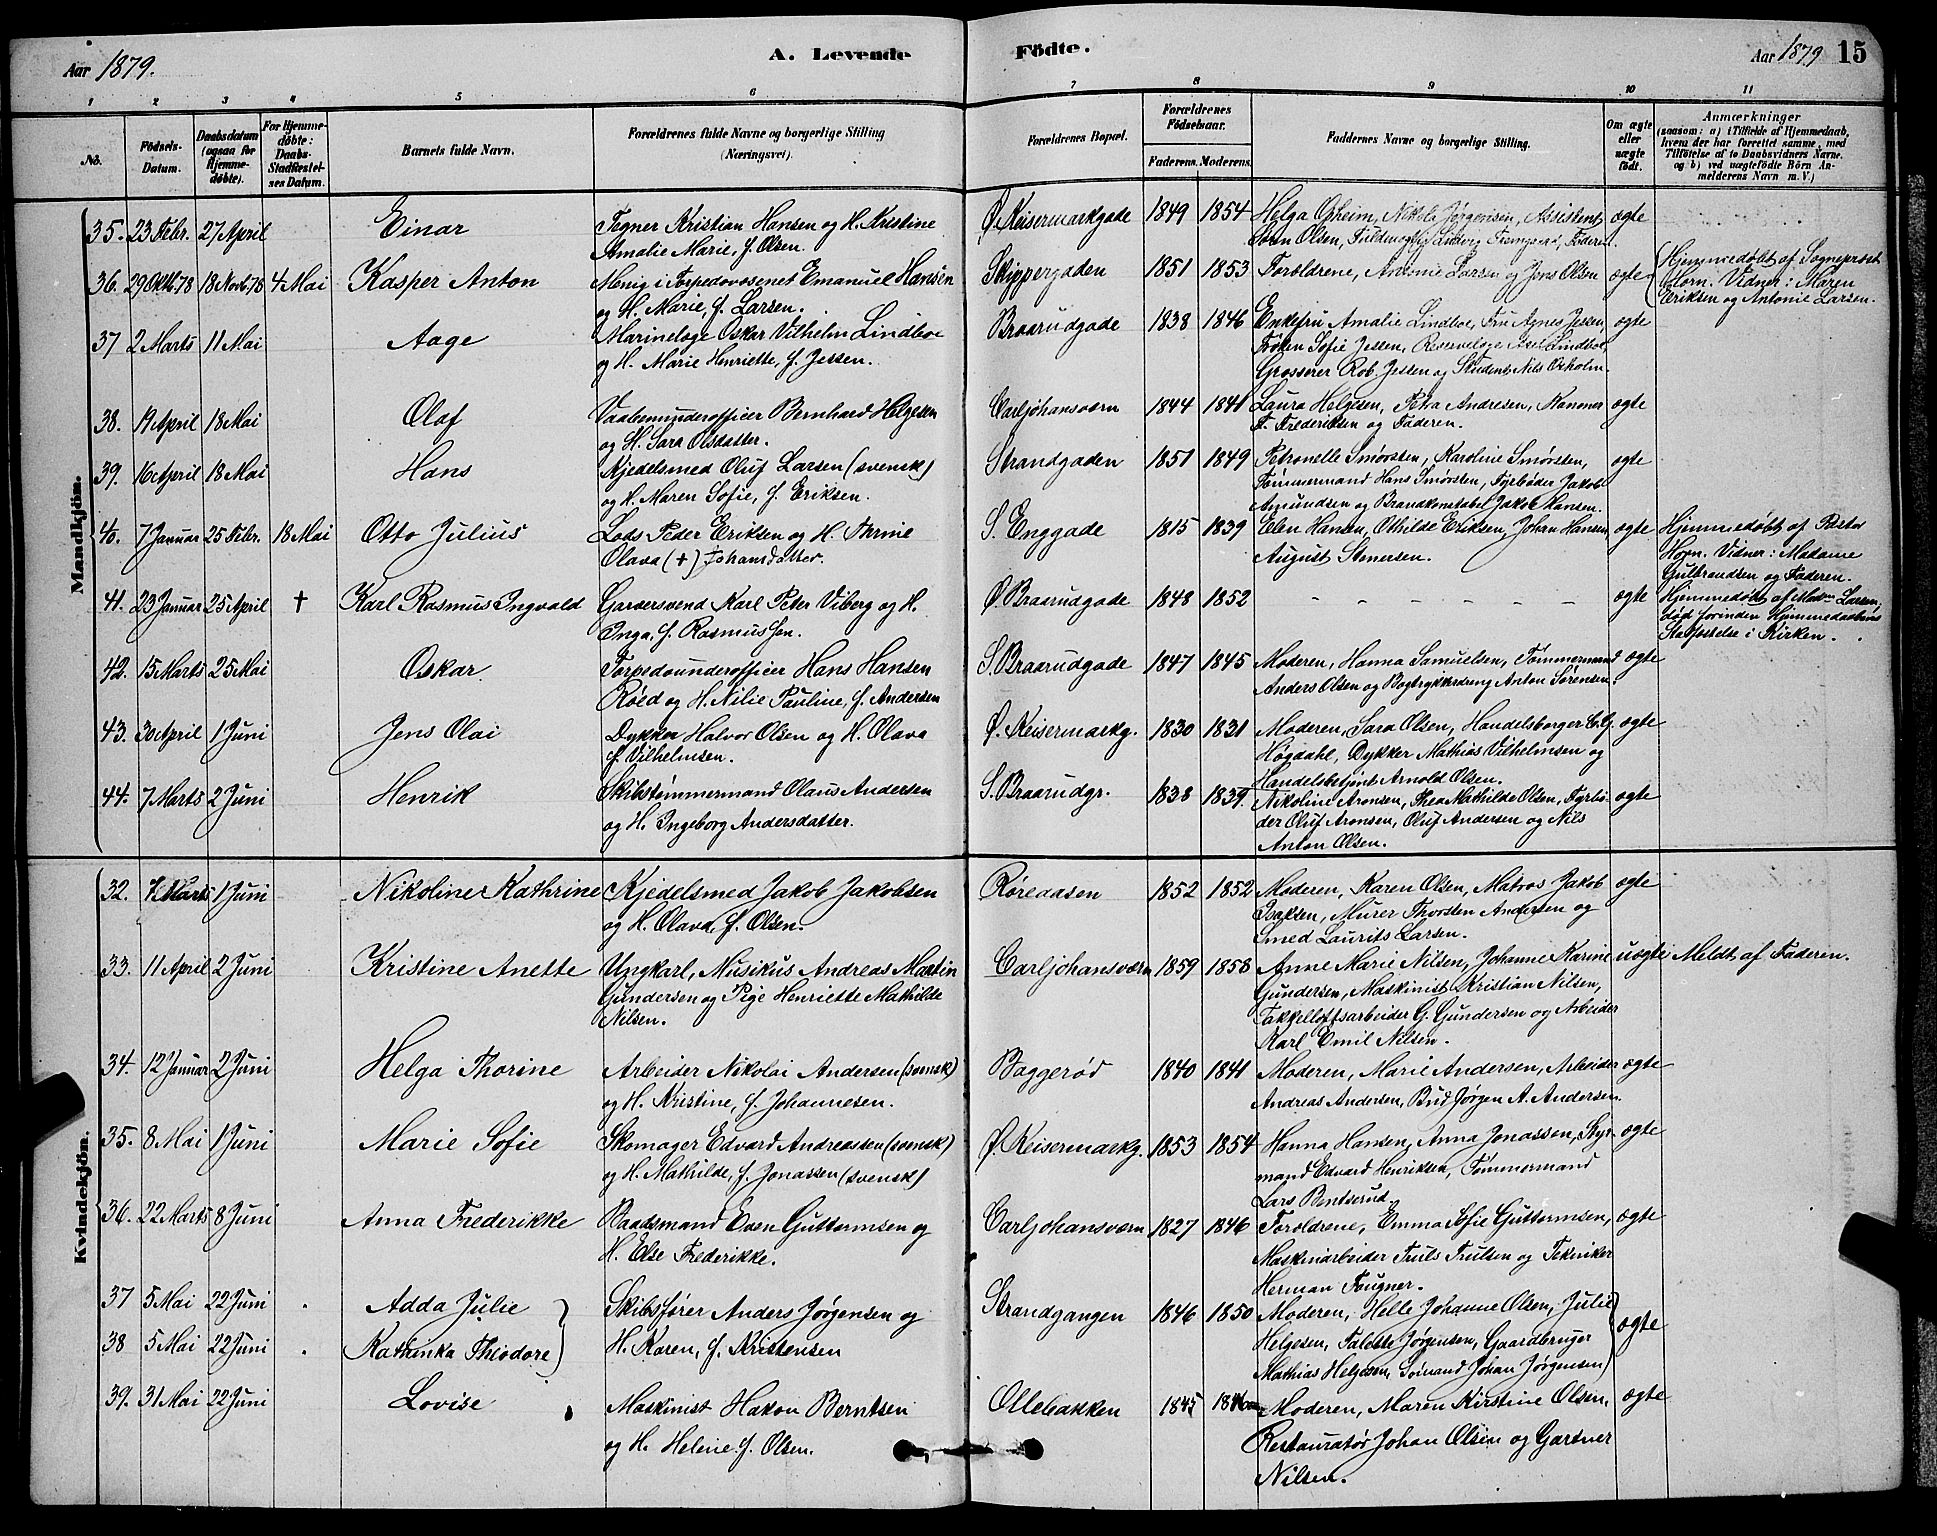 Aar 1879.
A. Levende
Fødte.
Aar 1879
15
1 2 3 4 5 6 7 8 9 10 11
No.
Fødsels-Datum.
Daabsdatum (ogsaa for Hjemme-døbte).
For Hjemme-døbte: Daabs-Stadfæstel-ses Datum.
Barnets fulde Navn.
Forældrenes fulde Navne og borgerlige Stilling (Næringsvei).
Forældrenes Bopæl.
Forældrenes Fødselsaar.
Faderens. Moderens.
Faddernes Navne og borgerlige Stilling.
Om ægte eller uægte født.
Anmærkninger
(saasom: a) i Tilfælde af Hjemmedaab, hvem der har forrettet samme, med Tilføielse af to Daabsvidners Navne. og b) ved uægtefødte Børn Anmelderens Navn m. V.)
Mandkjön.
35. 23 Febr. 27 April Einar Tegner Kristian Hansen og H. Kristine
Amalie Marie, f. Olsen.
Ø. Keisermarkgade 1849 1854 Helga Opheim, Nikolai Jørgensen, Assistent ægte
Søren Olsen, Ludvig Faderen.
36. 29 Oktb. 78 18 Novb. 78 4 Mai Kasper Anton Menig i Torpedovæsenet Emanuel Hansen
og H. Marie, f. Larsen.
Skippergaden 1851 1853 Forældrene, Antonie Larsen og Jens Olsen ægte
Hjemmedøbt af Sogneprest
Horn. Vidner: Maren
Eriksen og Antonie Larsen.
37 2 Marts 11 Mai Aage Marinelæge Oskar Vilhelm Lindboe
og H. Marie Henriette, f. Jessen.
Braarudgade 1838 1846 Enkefru Amalie Lindboe, Fru Agnes Jessen, ægte
Frøken Sofie Jessen, Reservelæge Axel Lindboe,
Grosserer Rob. Jessen og Student Nils Oxholm.
38. 19 April 18 Mai Olaf Vaabenunderofficer Bernhard Helgesen
og H. Sara Olsdatter.
Carljohansværn 1844 1841 Laura Helgesen, Petra Andresen, Kanoner ægte
F. Frederiksen og Faderen.
39. 16 April 18 Mai Hans Kjedelsmed Oluf Larsen (svensk)
og H. Maren Sofie, f. Eriksen.
Strandgaden 1851 1849 Petronelle Smørsten, Karoline Smørsten, ægte
Tømmermand Hans Smørsten, Fyrbøder Jakob
Amundsen og Brandkonstabel Jakob Hansen.
40. 7 Januar 25 Febr. 18 Mai Otto Julius Lods Peder Eriksen og H. Trine
Olava (+) Johansdatter.
S. Enggade 1815 1839 Elen Hansen, Othilde Eriksen, Johan Hansen ægte
August Simersen.
Hjemmedøbt af Pastor
Horn. Vidner: Madame
Gulbrandsen og Faderen.
41. 23 Januar 25 April † Karl Rasmus Ingvald Garversvend Karl Peter Viberg og H.
Inga, f. Rasmussen.
Ø. Braarudgade 1848 1852 - - - - - - - ægte
Hjemmedøbt af Madm Larsen,
død forinden Hjemmedaabens
Stadfæstelse i Kirken.
42. 15 Marts 25 Mai Oskar Torpedounderofficer Hans Hansen
Røed og H. Nilie Pauline, f. Andersen
S. Braarudgade 1847 1845 Moderen, Hanna Samuelsen, Tømmermand ægte
Anders Olsen og Bogtrykkerdreng Anton Sørensen.
43. 30 April 1 Juni Jens Olai Dykker Halvor Olsen og H. Olava
f. Vilhelmsen.
Ø. Keisermarkg. 1830 1831 Moderen, Sara Olsen, Handelsborger S. G. ægte
Høgdahl, Dykker Mathias Vilhelmsen og
Handelsbetjent Arnold Olsen.
44. 7 Marts 2 Juni Henrik Skibstømmermand Olaus Andersen
og H. Ingeborg Andersdatter.
S. Braarudgr. 1838 1839 Nikoline Aronsen, Thea Mathilde Olsen, Fyrbø- ægte
der Oluf Aronsen, Oluf Andersen og Nils
Anton Olsen.
Kvindekjön.
32. 7 Marts 1 Juni Nikoline Kathrine Kjedelsmed Jakob Jakobsen
og H. Olava, f. Olsen.
Røreaasen 1852 1852 Moderen, Karen Olsen, Matros Jakob ægte
Isaksen, Murer Thorsten Andersen og
Smed Laurits Larsen.
33. 11 April 2 Juni Kristine Anette Ungkarl, Musikus Andreas Martin
Gundersen og Pige Henriette Mathilde
Nilsen.
Carljohansværn 1859 1858 Anne Marie Nilsen, Johanne Karine uægte Meldt af Faderen.
Gundersen, Maskinist Kristian Nilsen,
Takkelloftsarbeider G. Gundersen og Arbeider
Karl Emil Nilsen.
34. 12 Januar 2 Juni Helga Thorine Arbeider Nikolai Andersen (svensk)
og H. Kristine, f. Johannesen.
Baggerød 1840 1841 Moderen, Marie Andersen, Arbeider ægte
Andreas Andersen, Bud Jørgen A. Andersen.
35. 8 Mai 1 Juni Marie Sofie Skomager Edvard Andreassen (svensk)
og H. Mathilde, f. Jonassen (svensk)
Ø. Keisermarkg. 1853 1854 Hanna Hansen, Anna Jonassen, Styr- ægte
mand Edvard Henriksen, Tømmermand
Lars Bentserud.
36. 22 Marts 8 Juni Anna Frederikke Baadsmand Even Guttormsen og
H. Else Frederikke.
Carljohansværn 1827 1846 Forældrene, Emma Sofie Guttormsen, ægte
Maskinarbeider Truls Trulsen og Tekniker
Herman Fougner.
37 5 Mai 22 Juni Adda Julie Skibsfører Anders Jørgensen og
38 5 Mai 22 Juni Kathinka Theodore H. Karen, f. Kristensen
Strandgangen 1846 1850 Moderen, Helle Johanne Olsen, Julie ægte
Helgesen, Jørgensen, Gaardbruger
Mathias Helgesen, Sømand Johan Jørgensen
39. 31 Mai 22 Juni Lovise Maskinist Hakon Berntsen
og H. Helene f. Olsen.
Ollebakken 1845 1846 Moderen, Maren Kirstine Olsen, ægte
Restauratør Johan Olsen og Gartner
Nilsen.